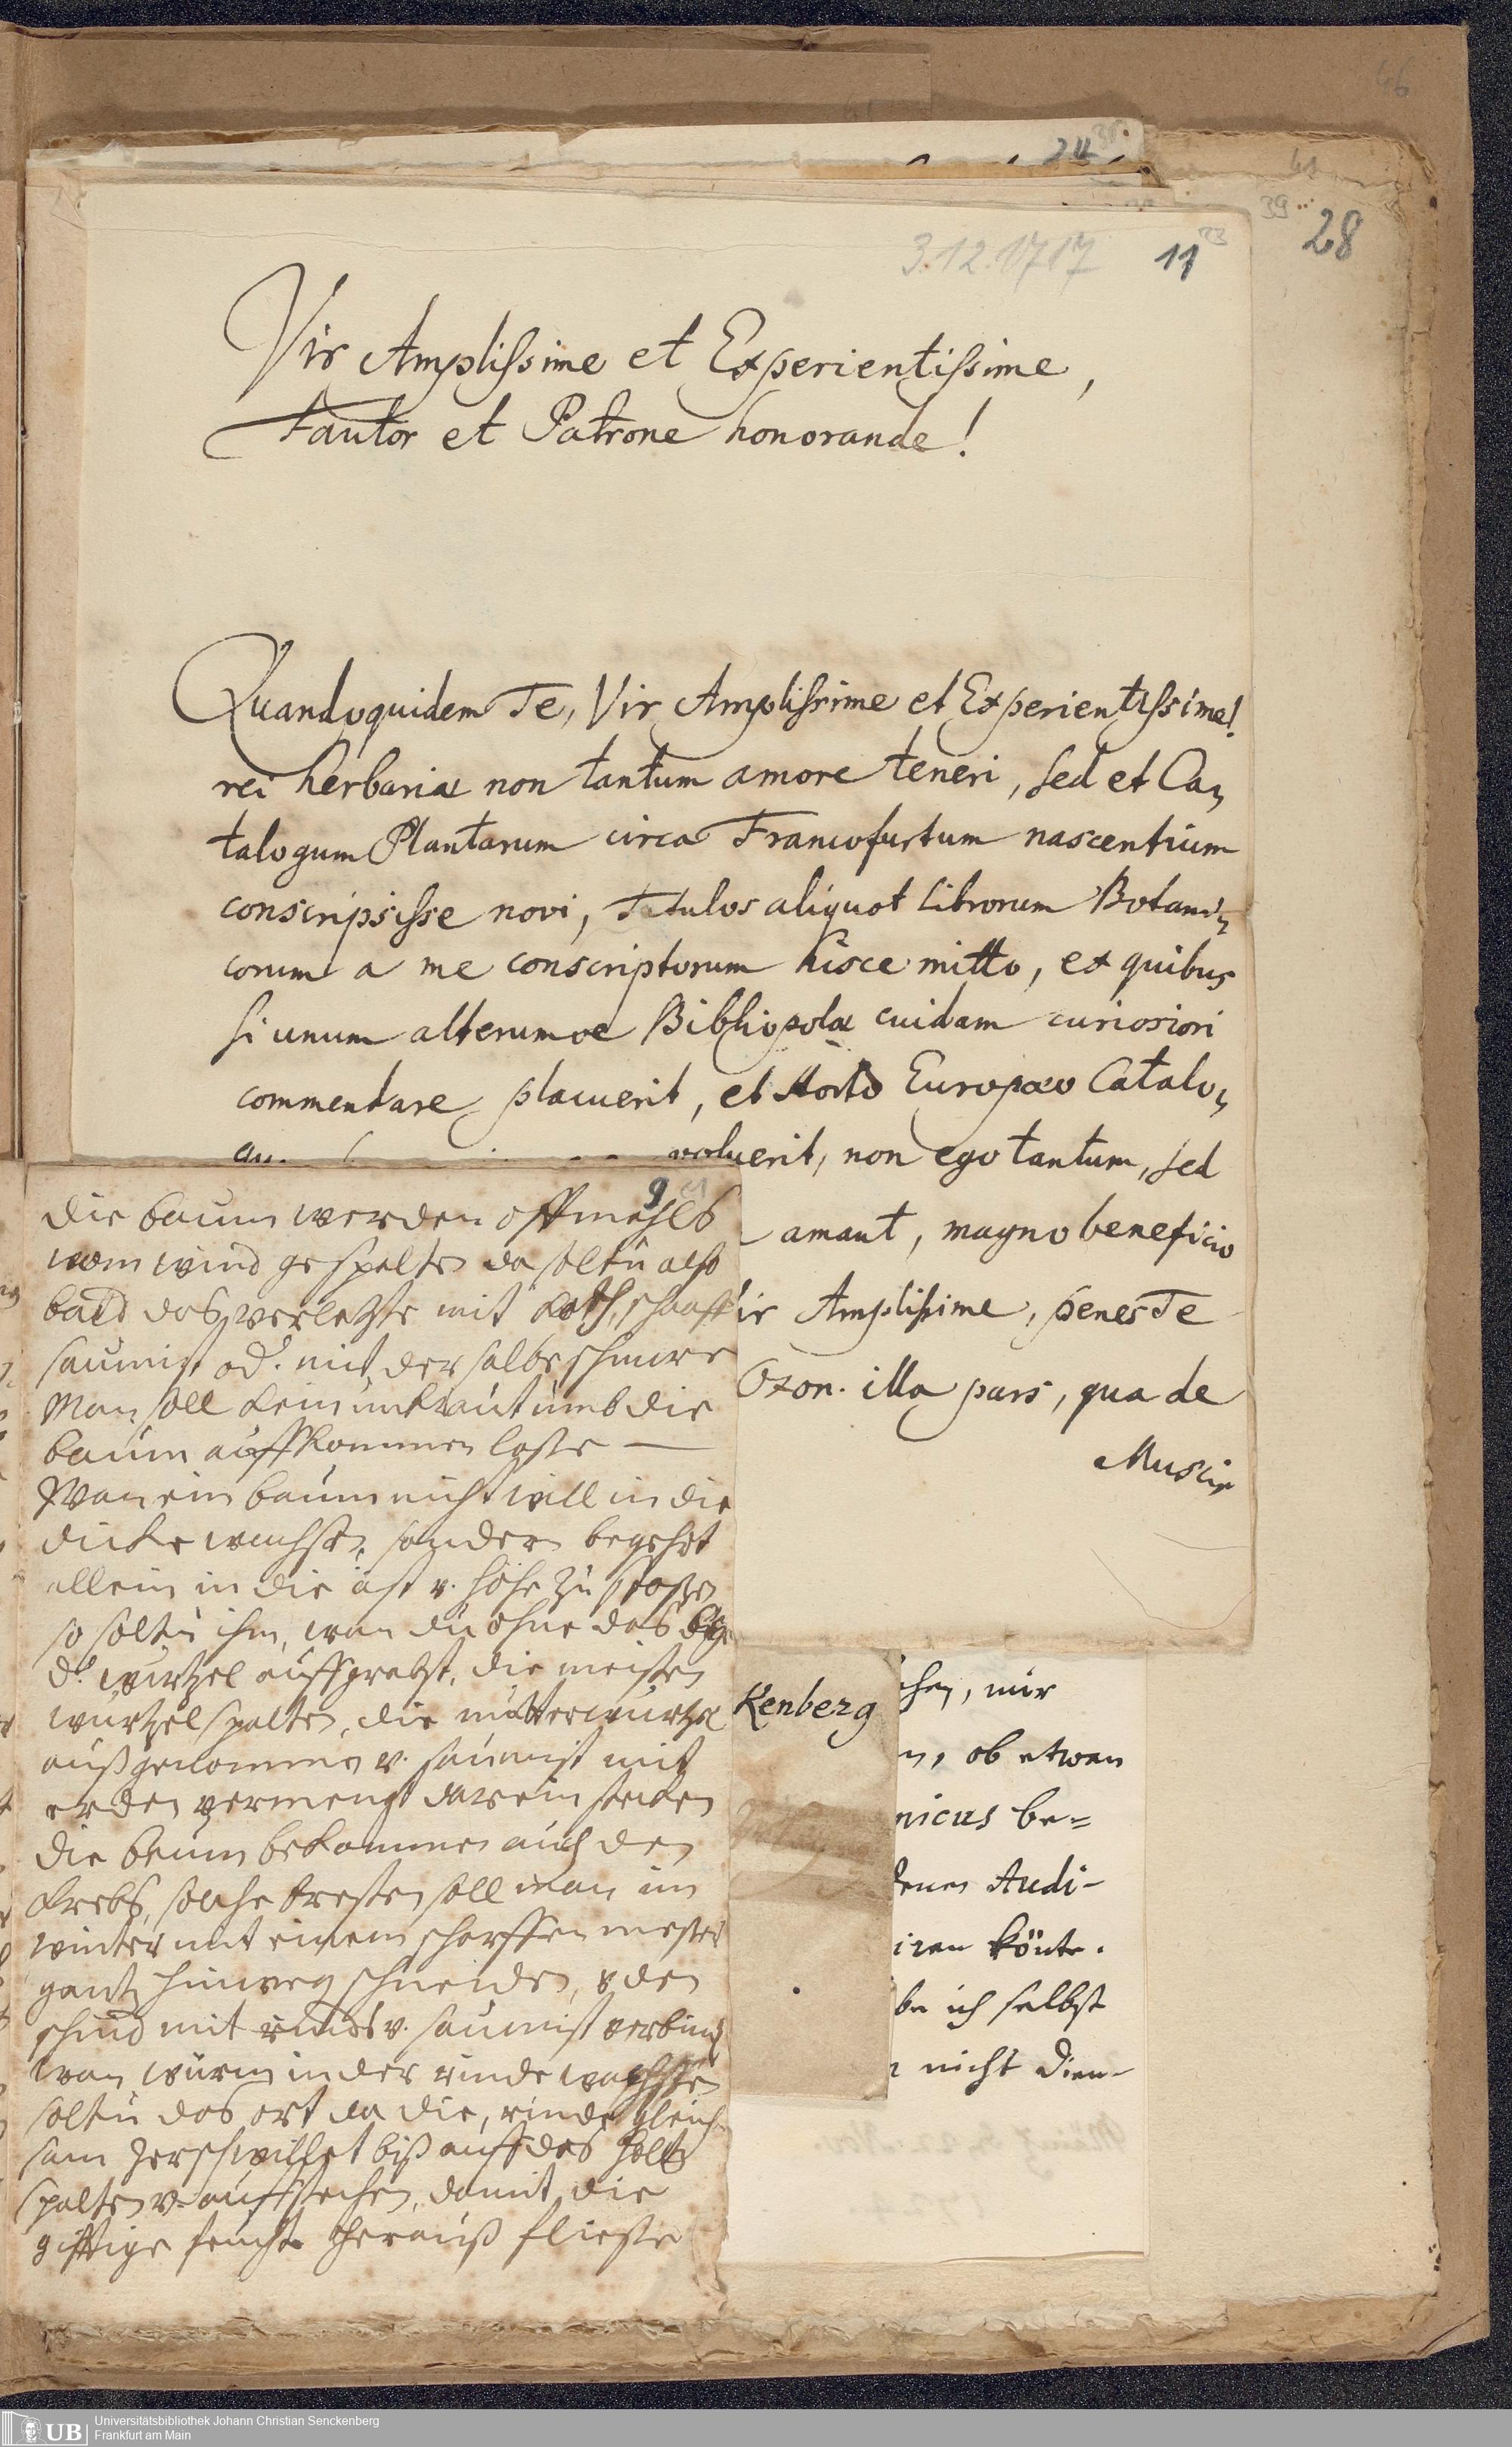 46
24
41
39
28
3.12.1717
11
23
Vir Amplissime et Experientissime,
Fautor et Patrone honorande!
Quandoquidem Te, Vir Amplissime et Experientissime!
rei herbariæ non tantum amore teneri, sed et Ca-
talogum Plantarum circa Francofurtum nascentium
conscripsisse novi, Titulos aliquot Librorum Botani-
corum a me conscriptorum hisce mitto, ex quibus
si unum alterumve Bibliopolæ cuidam curiosiori
commentare placuerit, et Horto Europæo Catalo-
voluerit, non ego tantum, sed
amant, magno beneficio
ir Amplissime, penes Te
Oxon. illa pars, qua de
Muscis
9
die baum werden offtmahls
vom wind gespalten da soltu also
bald das verletzte mit koth, schaaff
saumist od. mit der salbe schmire
Man soll kein unkraut umb die
baum auffkommen laste —
Wan ein baum nicht will in die
dicke wachse, sonder begehrt
allein in die äst v. höhe zu
so soltu ihm, wan du ohne das
d. wurtzel auffgrabst, die meisten
wurtzel spalten, die mutterwurtzel
außgenommen v. saumist mit
erden vermengt darein stecken
die baum bekommen auch den
krebs, solche bresten soll man im
winter mit einem scharffen messer
gantz hinweg schneiden, v den
schnid mit rinds v. saumist verbind
wan würm in der rinde wachssen
soltu das ort da die rinde gleich-
sam zerschwillet biß auff das holtz
spalten v. auffstechen, damit die
gifftige feucht herauß flieste
Kenberg
chen, mir
n, ob etwan
nicus be=
denen Audi-
iren könte.
be ich selbst
nicht dien-
UB
Universitätsbibliothek Johann Christian Senckenberg
Frankfurt am Main